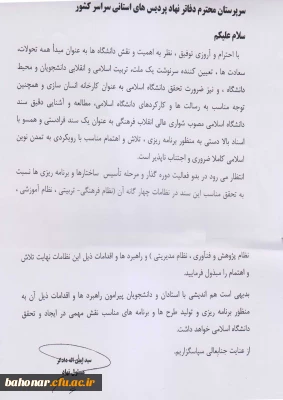 سرپرستان محترم دفاتر نهاد پردیس های استانی سراسر کشور
سلام علیکم
با احترام و آرزوی توفیق ، نظر به اهمیت و نقش دانشگاه ها به عنوان مبدأ همه تحولات،
سعادت ها ، تعیین کننده سرنوشت یک ملت، تربیت اسلامی و انقلابی دانشجویان و محیط
دانشگاه ، و نیز ضرورت تحقق دانشگاه اسلامی به عنوان کارخانه انسان سازی و همچنین
توجه مناسب به رسالت ها و کارکردهای دانشگاه اسلامی، مطالعه و آشنایی دقیق سند
دانشگاه اسلامی مصوب شورای عالی انقلاب فرهنگی به عنوان یک سند فرادستی و همسو با
اسناد بالا دستی به منظور برنامه ریزی ، تلاش و اهتمام مناسب با رویکردی به تمدن نوین
اسلامی کاملا ضروری و اجتناب ناپذیر است.
انتظار می رود در بدو فعالیت دوره گذار و مرحله تأسیس ساختارها و برنامه ریزی ها نسبت
به تحقق مناسب این سند در نظامات چهار گانه آن (نظام فرهنگی- تربیتی ، نظام آموزشی ،
نظام پژوهش و فنآوری ، نظام مدیریتی ) و راهبرد ها و اقدامات ذیل این نظامات نهایت تلاش
و اهتمام را مبذول فرمایید.
بدیهی است هم اندیشی با استادان و دانشجویان پیرامون راهبرد ها و اقدامات ذیل آن به
منظور برنامه ریزی و تولید طرح ها و برنامه های مناسب نقش مهمی در ایجاد و تحقق
دانشگاه اسلامی خواهد داشت.
از عنایت جنابعالی سپاسگزاریم.
سید
مسئول نهاد
bahonar.cfu.ac.ir